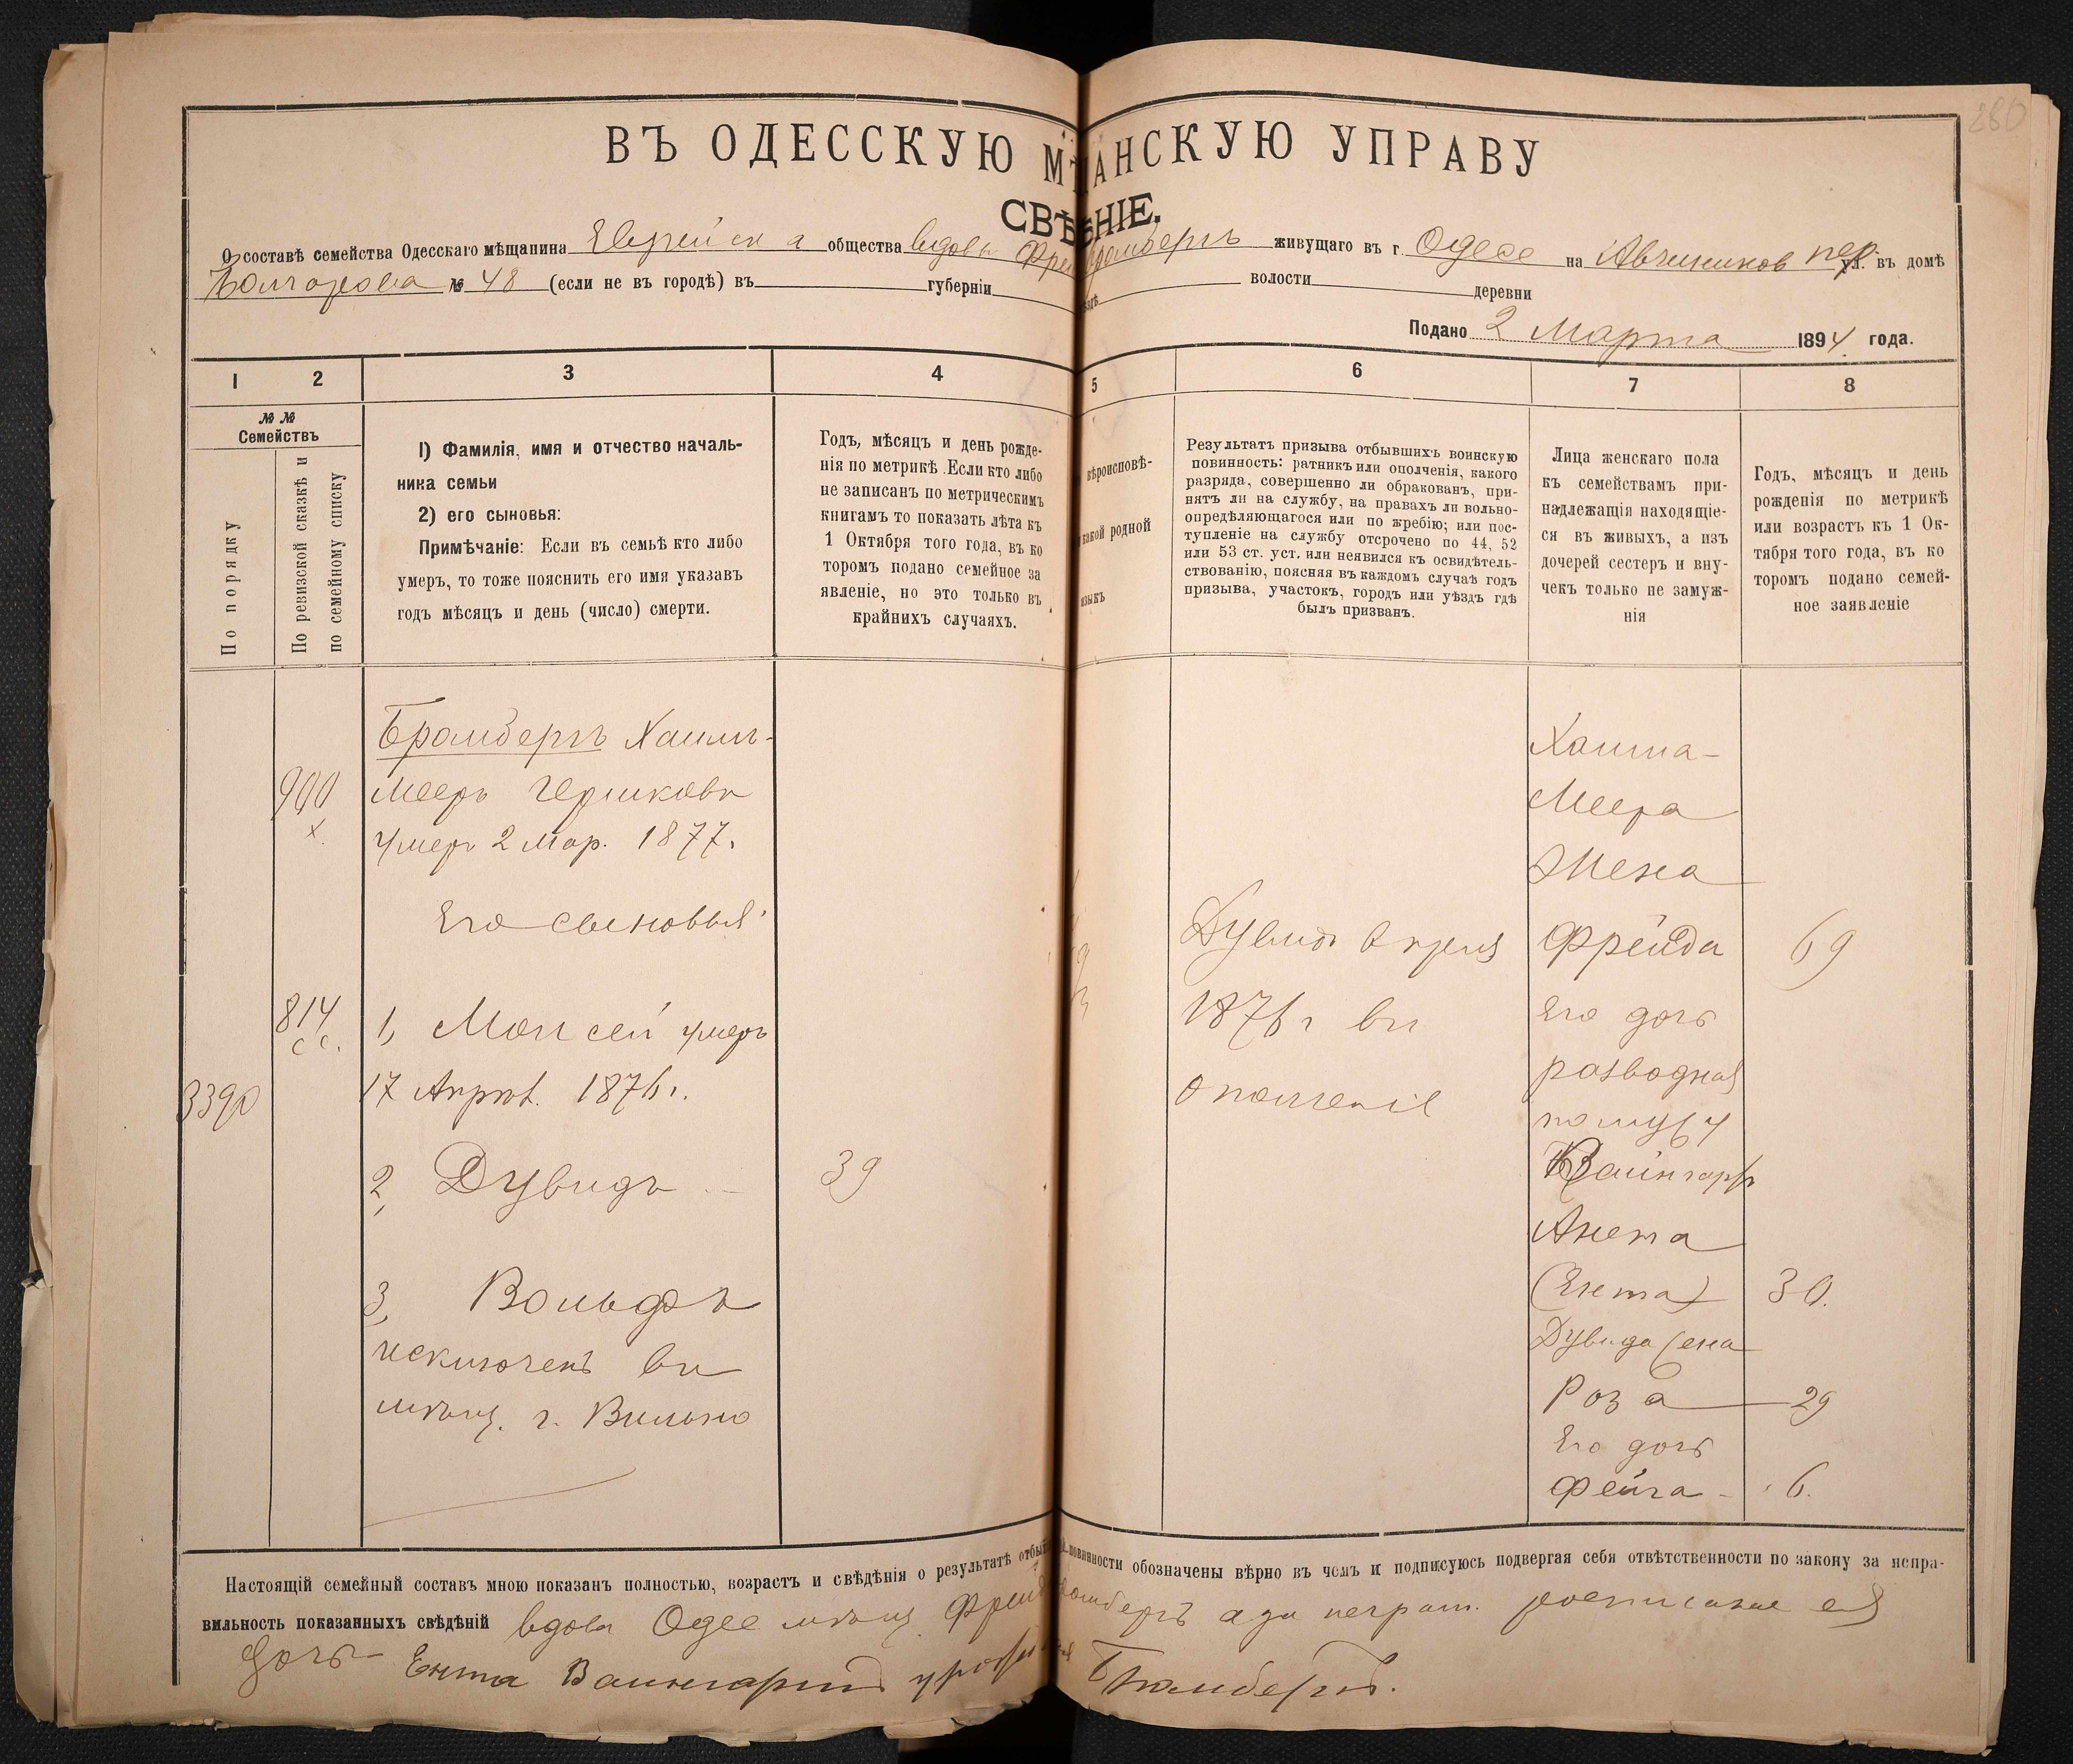 280
ВЪ ОДЕССКУЮ МѢ АНСКУЮ УПРАВУ
СВѢ НІЕ.
О составѣ семейства Одесскаго мѣщанина Еврейска общества вдовы Фре Бромбергъ живущаго въ г. Одесе на Авчиников пер. ул. въ домѣ
№ 48 (если не въ городѣ) въ губерніи волости деревни
Подано 2 Марта 1894 года.
1 2 3 4 5 6 7 8
№ №
Семействъ
По порядку
По ревизской сказкѣ и
по семейному списку
1) Фамилія, имя и отчество началь-
ника семьи
2) его сыновья:
Примѣчаніе: Если въ семьѣ кто либо
умеръ, то тоже пояснить его имя указавъ
годъ мѣсяцъ и день (число) смерти.
Годъ, мѣсяцъ и день рожде-
нія по метрикѣ .Если кто либо
не записанъ по метрическимъ
книгамъ то показать лѣта къ
1 Октября того года, въ ко
торомъ подано семейное за
явленіе, но это только въ
крайнихъ случаяхъ.
вѣроисповѣ-
какой родной
языкъ
Результатъ призыва отбывшихъ воинскую
повинность: ратникъ или ополченія, какого
разряда, совершенно ли обракованъ, при-
нятъ ли на службу, на правахъ ли вольно-
опредѣляющагося или по жребію; или пос-
тупленіе на службу отсрочено по 44, 52
или 53 ст. уст. или неявился къ освидѣтель-
ствованію, поясняя въ каждомъ случаѣ годъ
призыва, участокъ, городъ или уѣздъ гдѣ
былъ призванъ.
Лица женскаго пола
къ семействамъ при-
надлежащія находящіе-
ся въ живыхъ, а изъ
дочерей сестеръ и вну-
чекъ только не замуж-
нія
Годъ, мѣсяцъ и день
рожденія по метрикѣ
или возрастъ къ 1 Ок-
тября того года, въ ко
торомъ подано семей-
ное заявленіе
Бромбергъ Хаимъ-
900 Мееръ Гершковъ
х. умеръ 2 Мар. 1877.
Его сыновья
814 1, Моисей умеръ
сс.
17 Апрѣл. 1876г.
3390
2, Дувидъ 39
3, Вольфъ
исключенъ въ
мѣщ. г. Вильно
Дувидъ
1876 г въ
ополченіе
Хаима-
Меера
Жена
Фрейда 69
Его дочь
розводная
по мужу
Вайнгартъ
Анета
(Ента) 30.
Дувида жена
Роза 29
Его дочь
Фейга - 6.
Настоящій семейный составъ мною показанъ полностью, возрастъ и свѣдѣнія о результатѣ отбы повинности обозначены вѣрно въ чемъ и подписуюсь подвергая себя отвѣтственности по закону за непра-
вильность показанныхъ свѣдѣній вдова Одес мѣщ. Фрей омбергъ а за неграм. росписалас ея
дочь Ента Ваингартъ Бромбергъ.